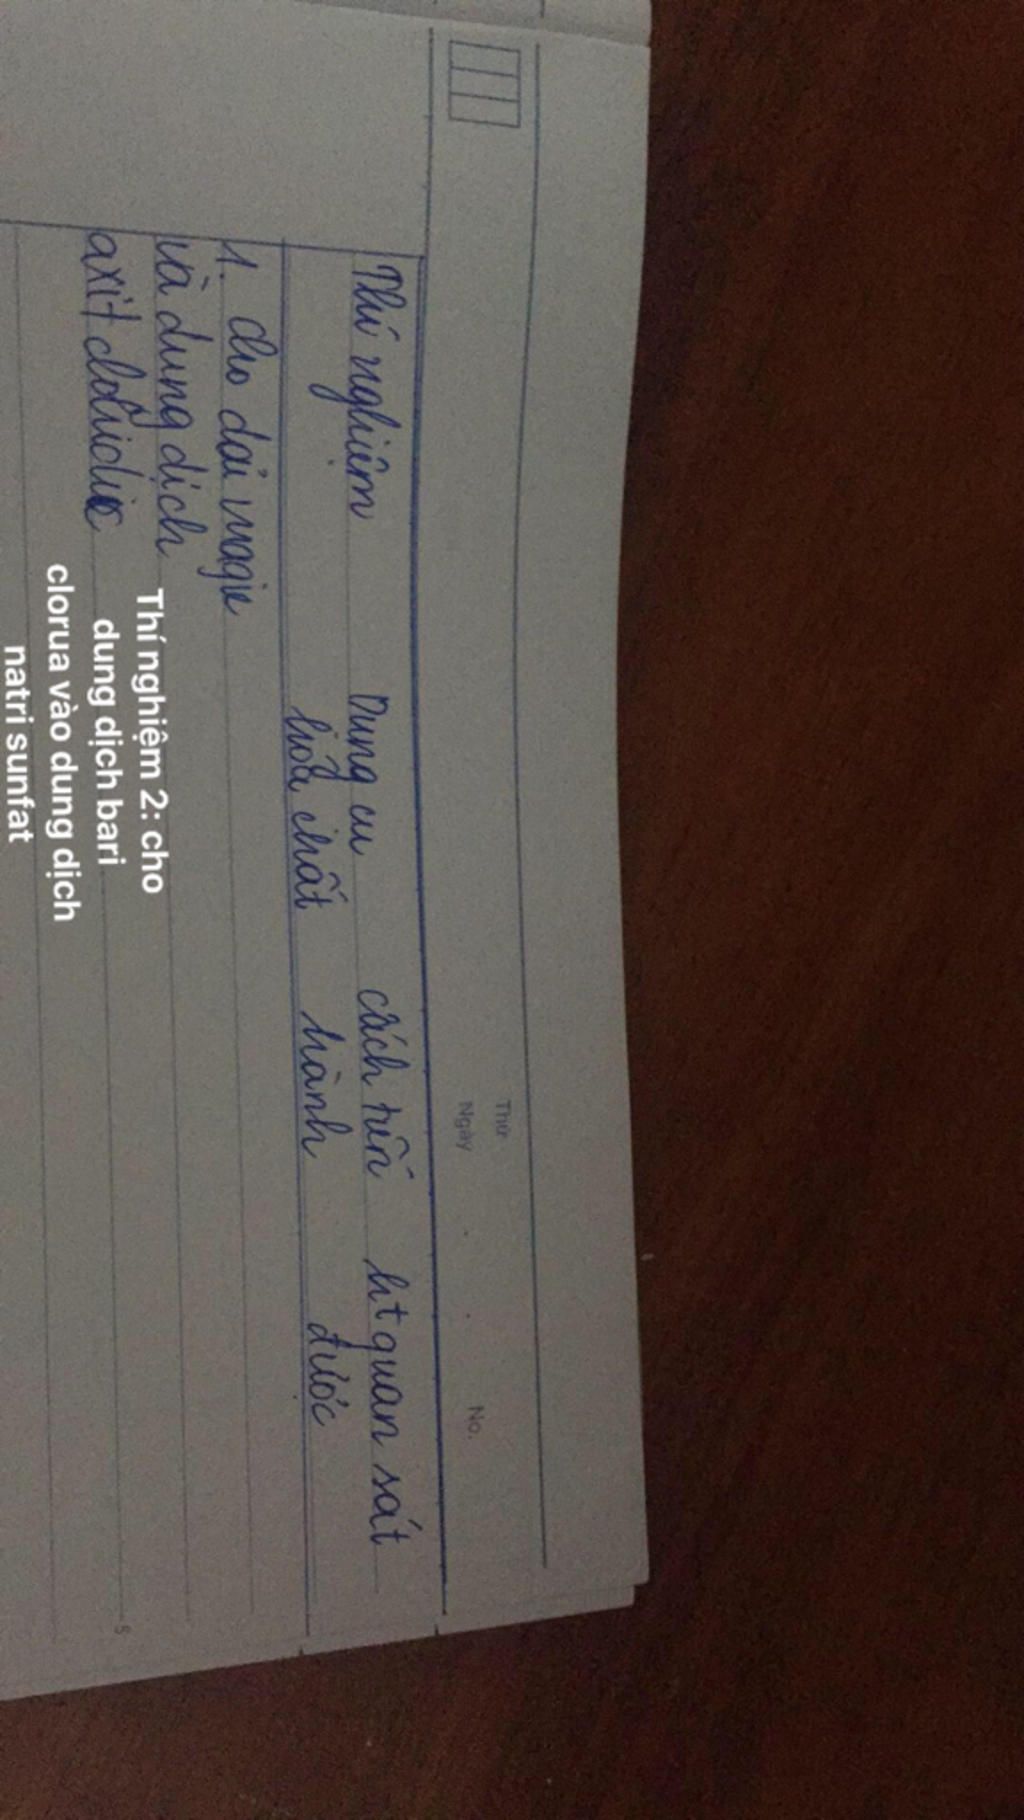 Thứ
Ngày
No.
Thí nghiệm
Dụng cụ
hoá chất
cách tiến
hành
ht quan sát
được
1. cho dải magie
và dung dịch
axit clohidric
Thí nghiệm 2: cho
dung dịch bari
clorua vào dung dịch
natri sunfat
5